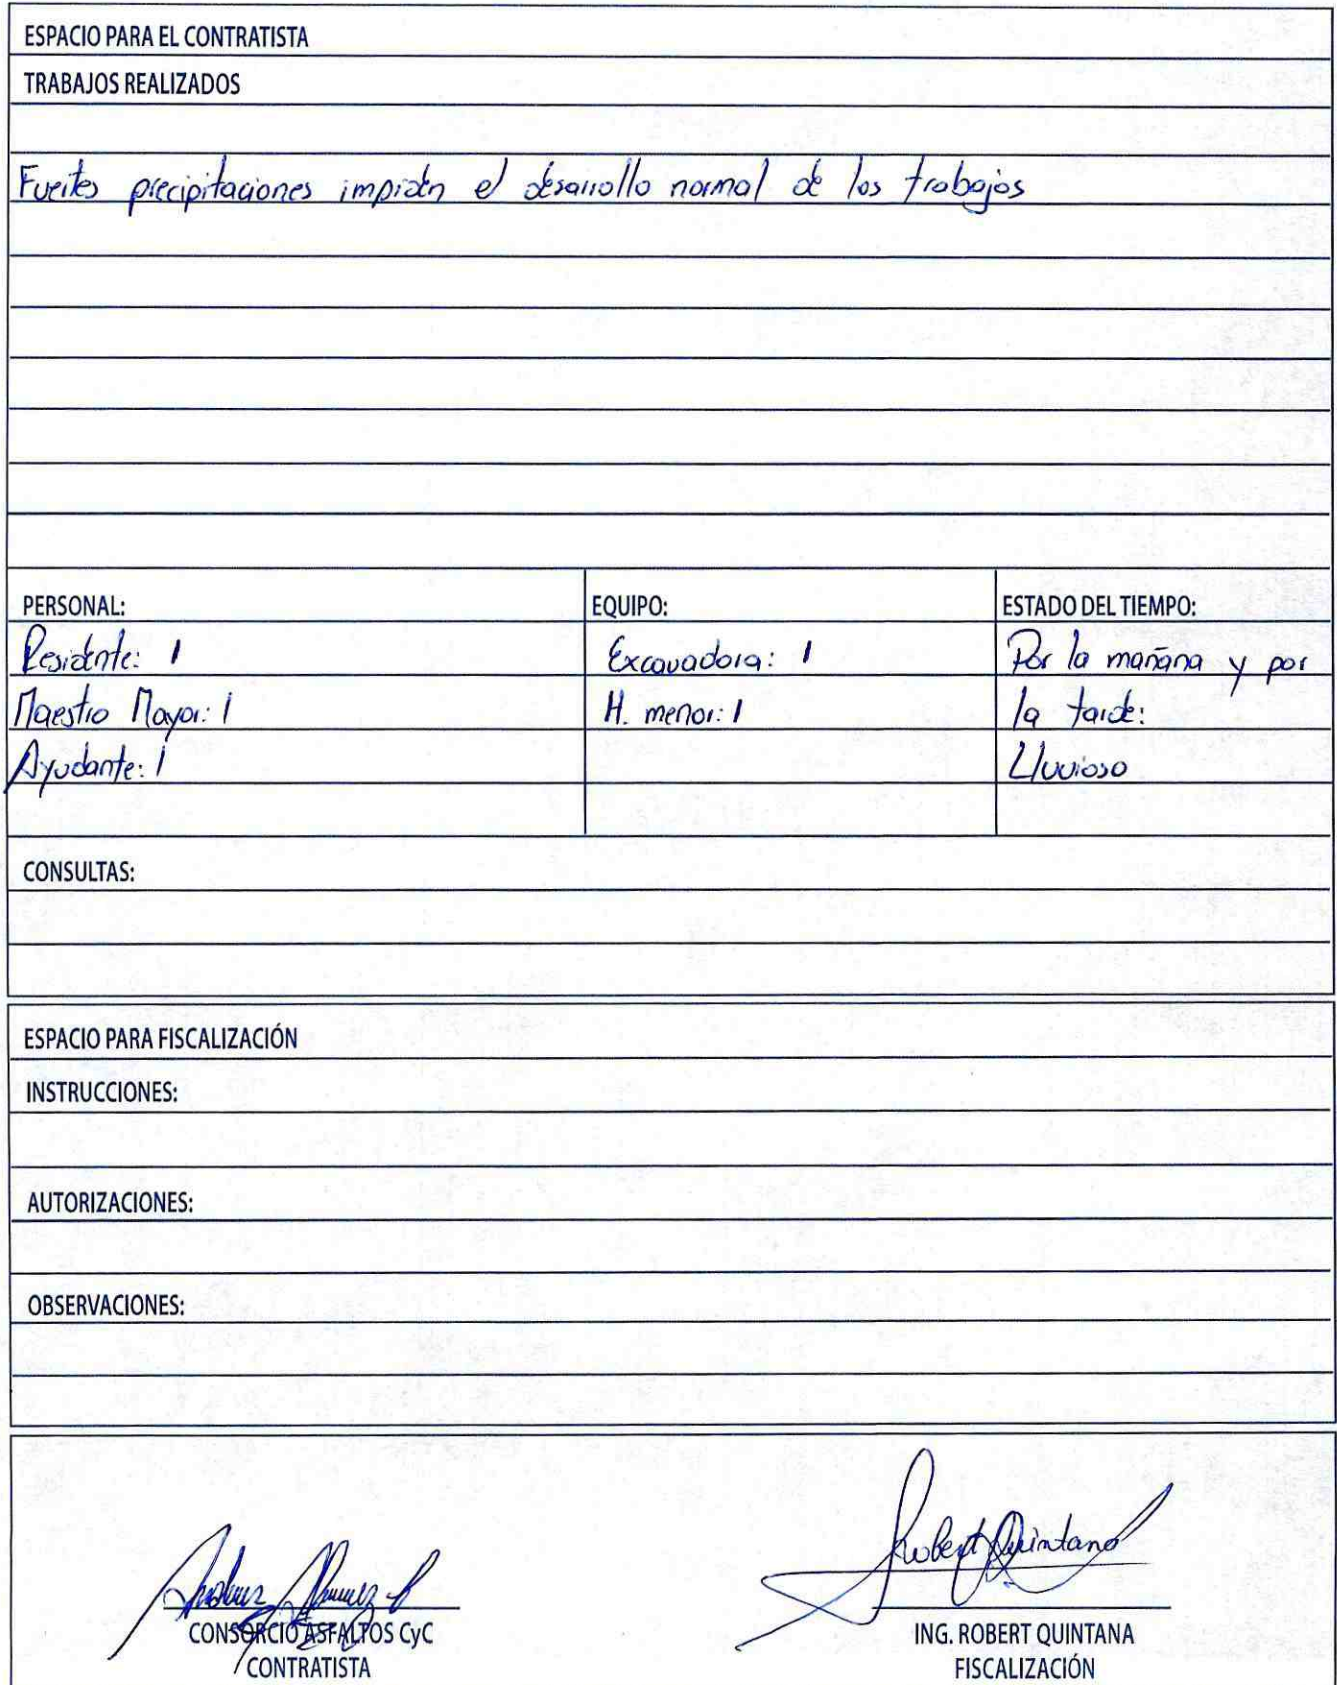 ESPACIO PARA EL CONTRATISTA
TRABAJOS REALIZADOS
Fuertes precipitaciones impiden el desarrollo normal de los trabajos
PERSONAL: EQUIPO: ESTADO DEL TIEMPO:
Residente: 1 Excavadora: 1 Por la mañana y por
Maestro Mayor: 1 H. menor: 1 la tarde:
Ayudante: 1 Lluvioso
CONSULTAS:
ESPACIO PARA FISCALIZACIÓN
INSTRUCCIONES:
AUTORIZACIONES:
OBSERVACIONES:
Robert Quintana
CONSORCIO ASFALTOS CyC ING. ROBERT QUINTANA
CONTRATISTA FISCALIZACIÓN